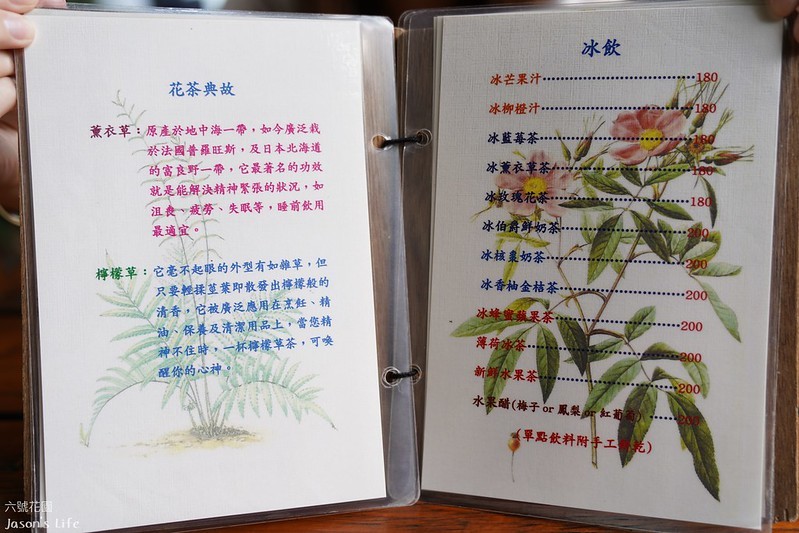 花茶典故
薰衣草：原產於地中海一帶，如今廣泛栽
於法國普羅旺斯，及日本北海道
的富良野一帶，它最著名的功效
就是能解決精神緊張的狀況，如
沮喪、疲勞、失眠等，睡前飲用
最適宜。
檸檬草：它毫不起眼的外型有如雜草，但
只要輕揉莖葉即散發出檸檬般的
清香，它被廣泛應用在烹飪、精
油、保養及清潔用品上，當您精
神不住時，一杯檸檬草茶，可喚
醒你的心神。
冰飲
冰芒果汁 180
冰柳橙汁 180
冰藍莓茶 180
冰薰衣草茶 180
冰玫瑰花茶 180
冰伯爵鮮奶茶 200
冰核棗奶茶 200
冰香柚金桔茶 200
冰蜂蜜蘋果茶 200
薄荷冰茶 200
新鮮水果茶 200
水果醋(梅子 or 鳳梨 or 紅葡萄) 200
(單點飲料附手工餅乾)
六號花園
Jason's Life